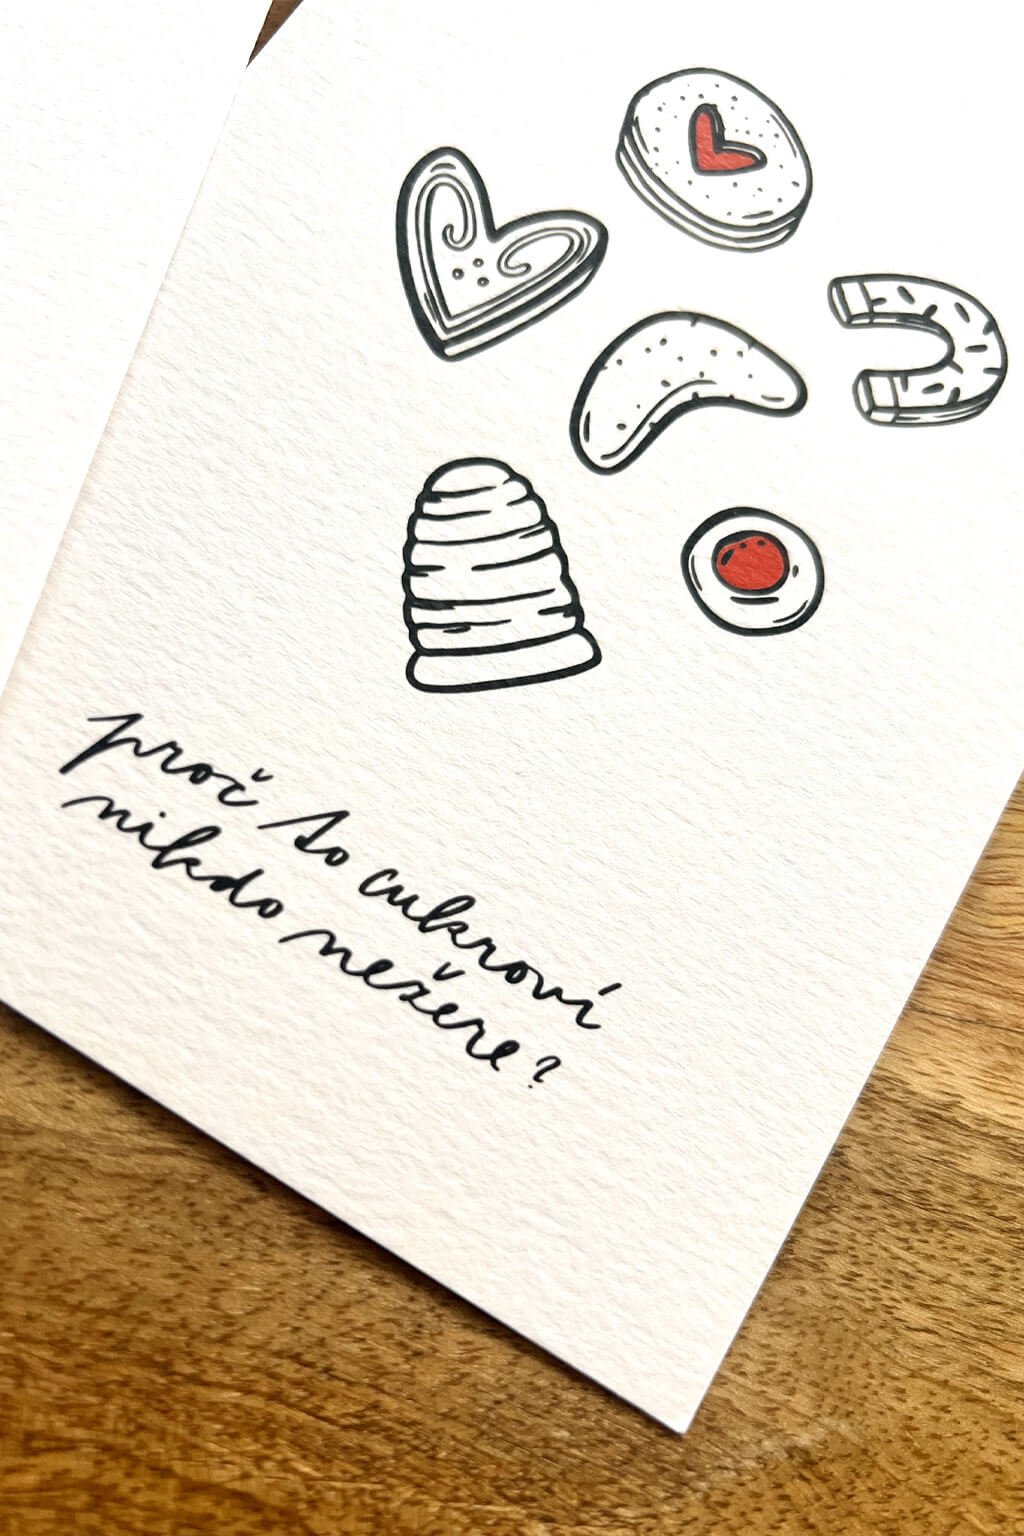 proč to cukroví
nikdo nežere?